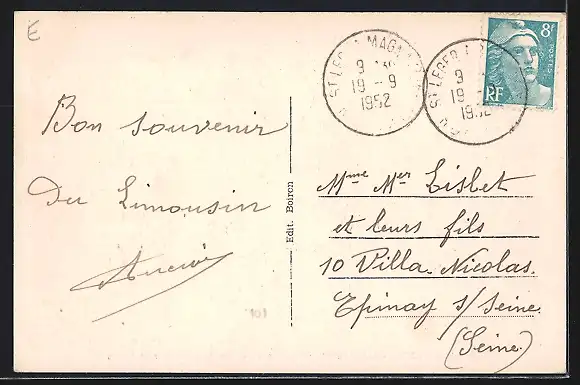 E
Bon souvenir
Du Limousin
Edit. Boiron
ST LEGER MAGNAZEIX
9 H
19 - 9
1952
ST LEGER
9
19 -
1952
8F
POSTES
RF
Mme Mer Lisbet
et leurs fils
10 Villa. Nicolas.
Epinay s/ Seine.
(Seine)